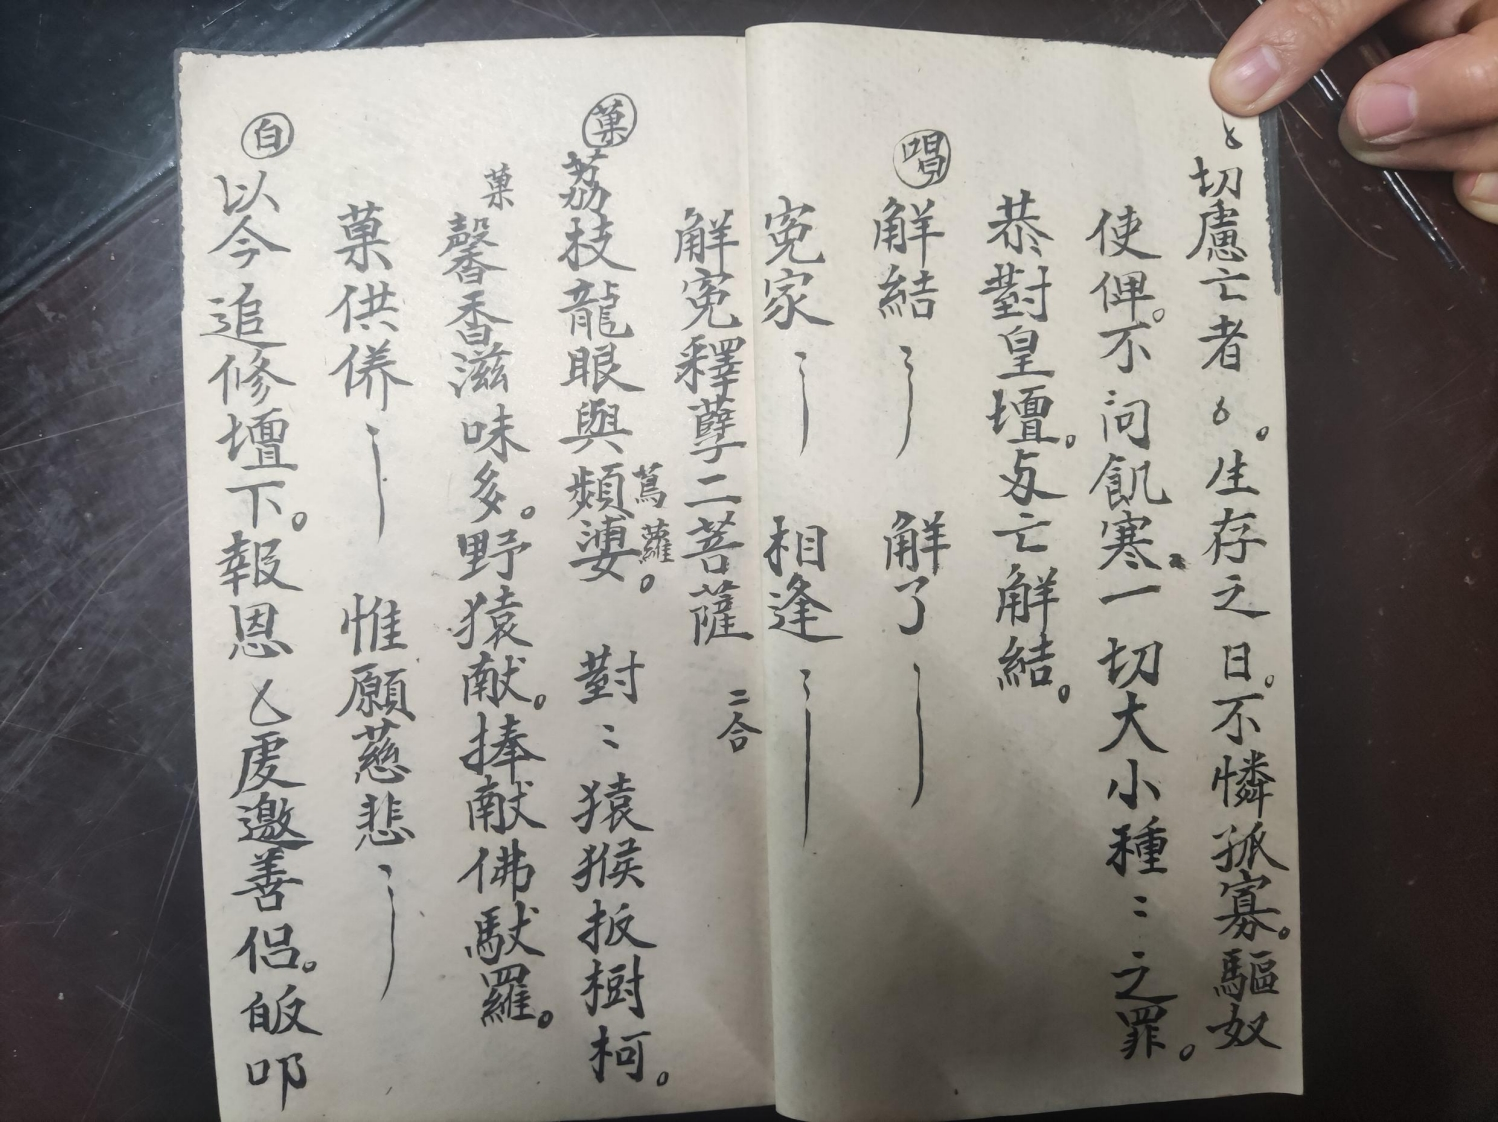 切慮亡者ム。生存之日。不憐孤寡。驅奴
使俾。不问飢寒。一切大小種〻之罪。
恭對皇壇。与亡解結。
唱 解結 解了
寃家 相逢
解寃釋孽二菩薩 二合
菓 荔枝龍眼與頻蔢蔦蘿。 對〻猿猴扳樹柯。
菓 馨香滋味多。野猿献。捧献佛馱羅。
菓供養 惟願慈悲
白 以今追修壇下。報恩乚處邀善侣。皈叩